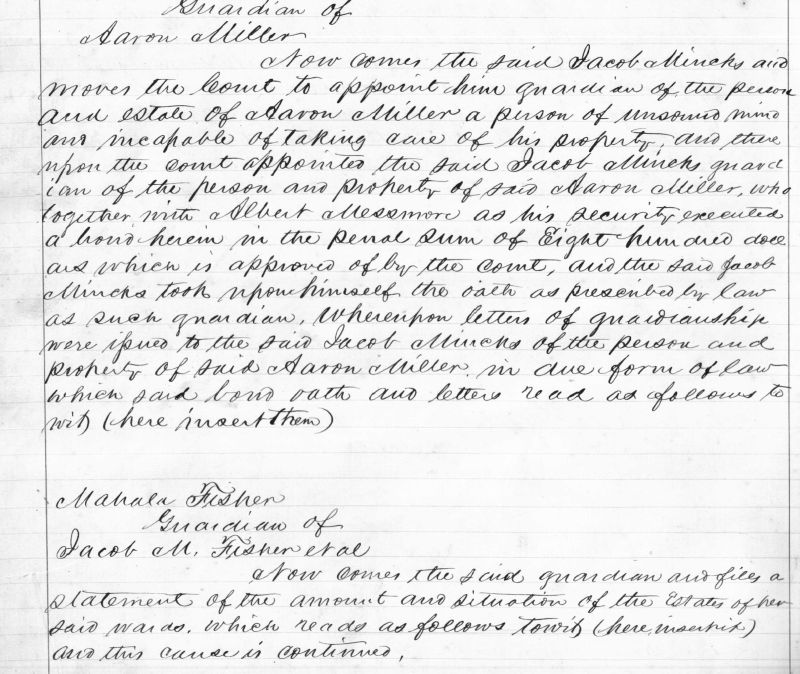 Guardian of
Aaron Miller
Now comes the said Jacob Mincks and
moves the Court to appoint him guardian of the person
and estate of Aaron Miller a person of unsound mind
and incapable of taking care of his property, and there
upon the court appointed the said Jacob Mincks guard
ian of the person and property of said Aaron Miller, who
together with Albert Messmore as his security executed
a bond herein in the penal sum of Eight hundred doll
ars which is approved of by the court, and the said Jacob
Mincks took upon himself the oath as prescribed by law
as such guardian. Whereupon letters of guardianship
were issued to the said Jacob Mincks of the person and
property of said Aaron Miller in due form of law
which said bond oath and letters read as follows to
wit, (here insert them)
Mahala Fisher
Guardian of
Jacob M. Fisher et al
Now comes the said guardian and files a
statement of the amount and situation of the Estates of her
said wards. which reads as follows towit, (here insert it)
and this cause is continued.